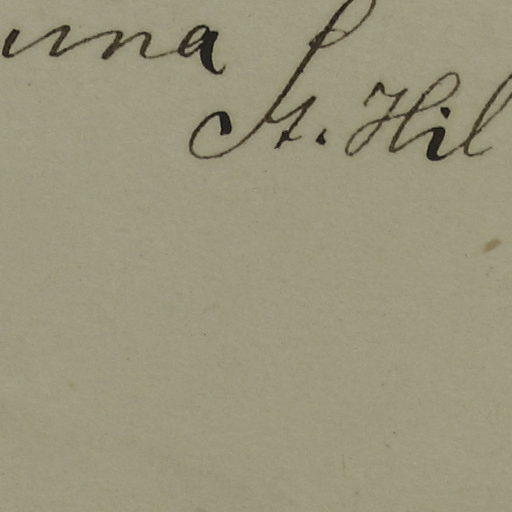 una
St. Hil